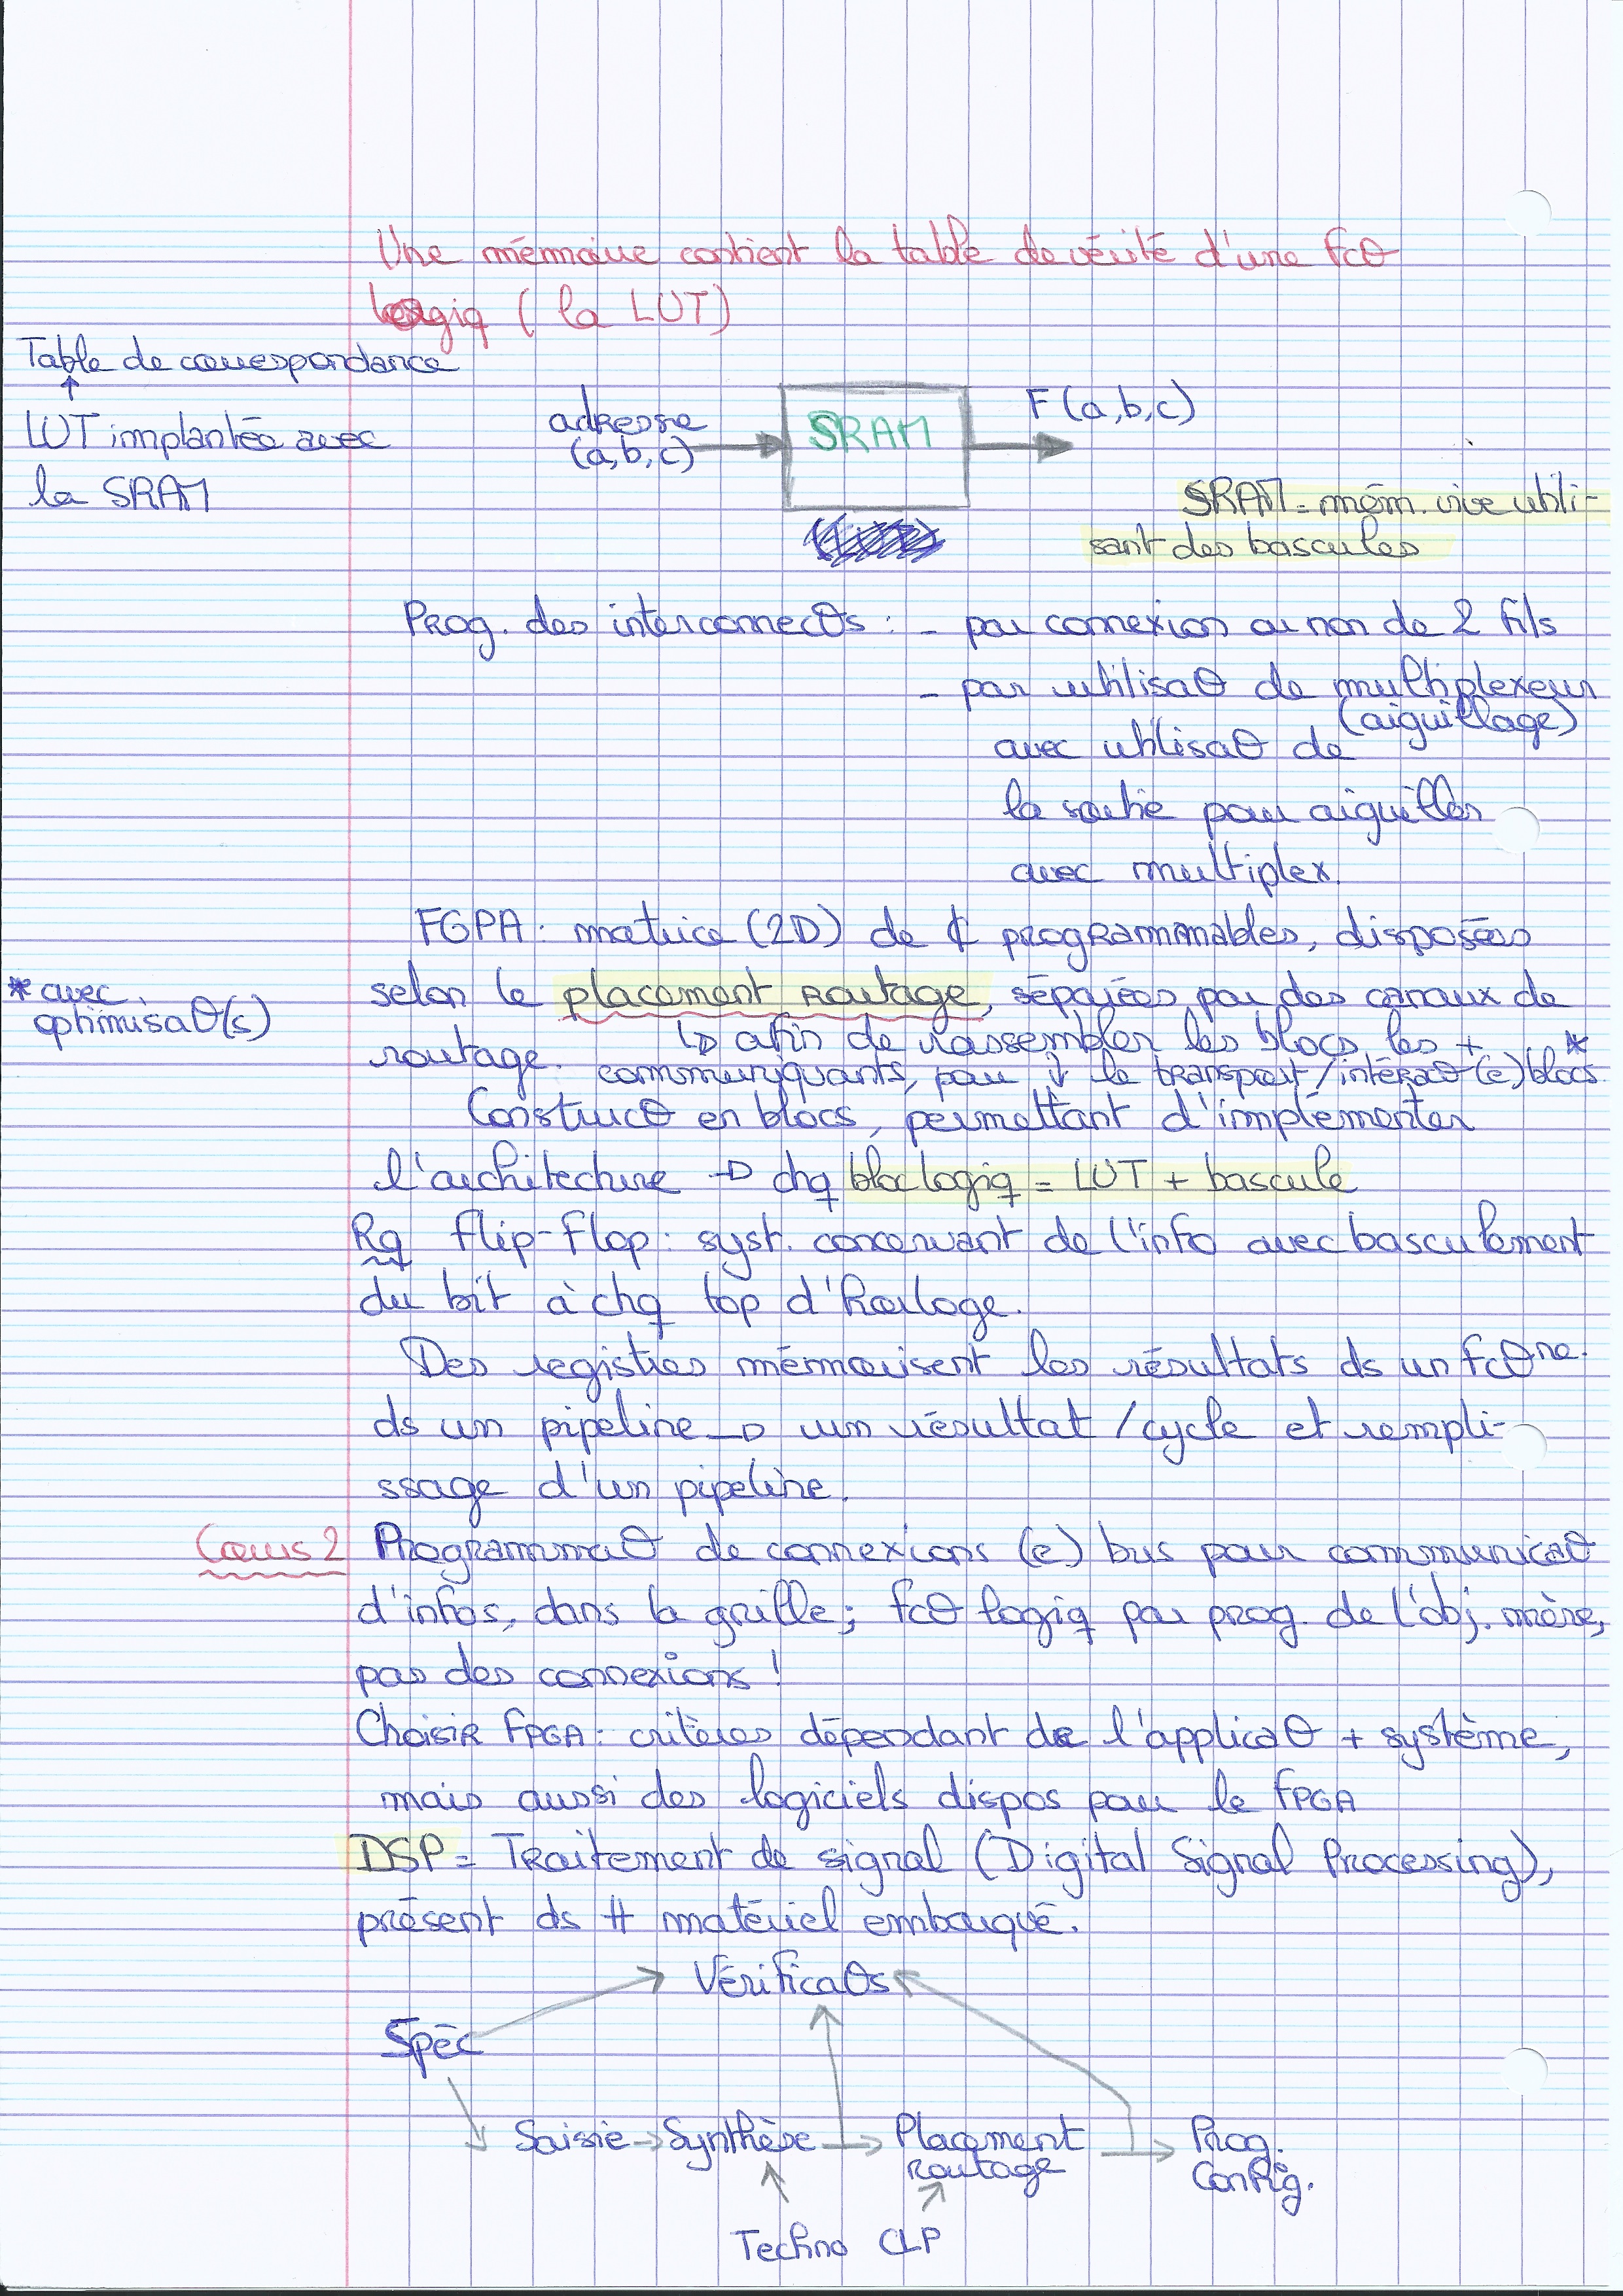 Une mémoire contient la table de vérité d'une fcθ
logiq (la LUT)
Table de correspondance
↑
LUT implantée avec
la SRAM
adresse
(a,b,c)
SRAM
F(a,b,c)
SRAM = mém. vive utili-
sant des bascules
Prog. des interconnecθs : - par connexion ou non de 2 fils
- par utilisaθ de multiplexeur
(aiguillage)
avec utilisaθ de
la sortie pour aiguiller
avec multiplex.
FGPA : matrice (2D) de ¢ programmables, disposées
selon le placement routage, séparées par des canaux de
routage.
↳ afin de rassembler les blocs les + *
communiquants, pour ↓ le transport/intéracθ (e) blocs
* avec
optimisaθ(s)
Construcθ en blocs, permettant d'implémenter
l'architecture → chq bloc logiq = LUT + bascule
Rq flip-flop : syst. concervant de l'info avec basculement
du bit à chq top d'horloge.
Des registres mémorisent les résultats ds un fcθne.
ds un pipeline → un résultat /cycle et rempli-
ssage d'un pipeline.
Cours 2 Programmaθ de connexions (e) bus pour communicaθ
d'infos, dans la grille; fcθ logiq par prog. de l'obj. mère,
pas des connexions !
Choisir FPGA : critères dépendant de l'applicaθ + système,
mais aussi des logiciels dispos pour le FPGA
DSP = Traitement de signal (Digital Signal Processing),
présent ds # matériel embarqué.
Vérificaθs
Spéc
Saisie → Synthèse → Placement
routage
Prog.
Config.
Techno CLP